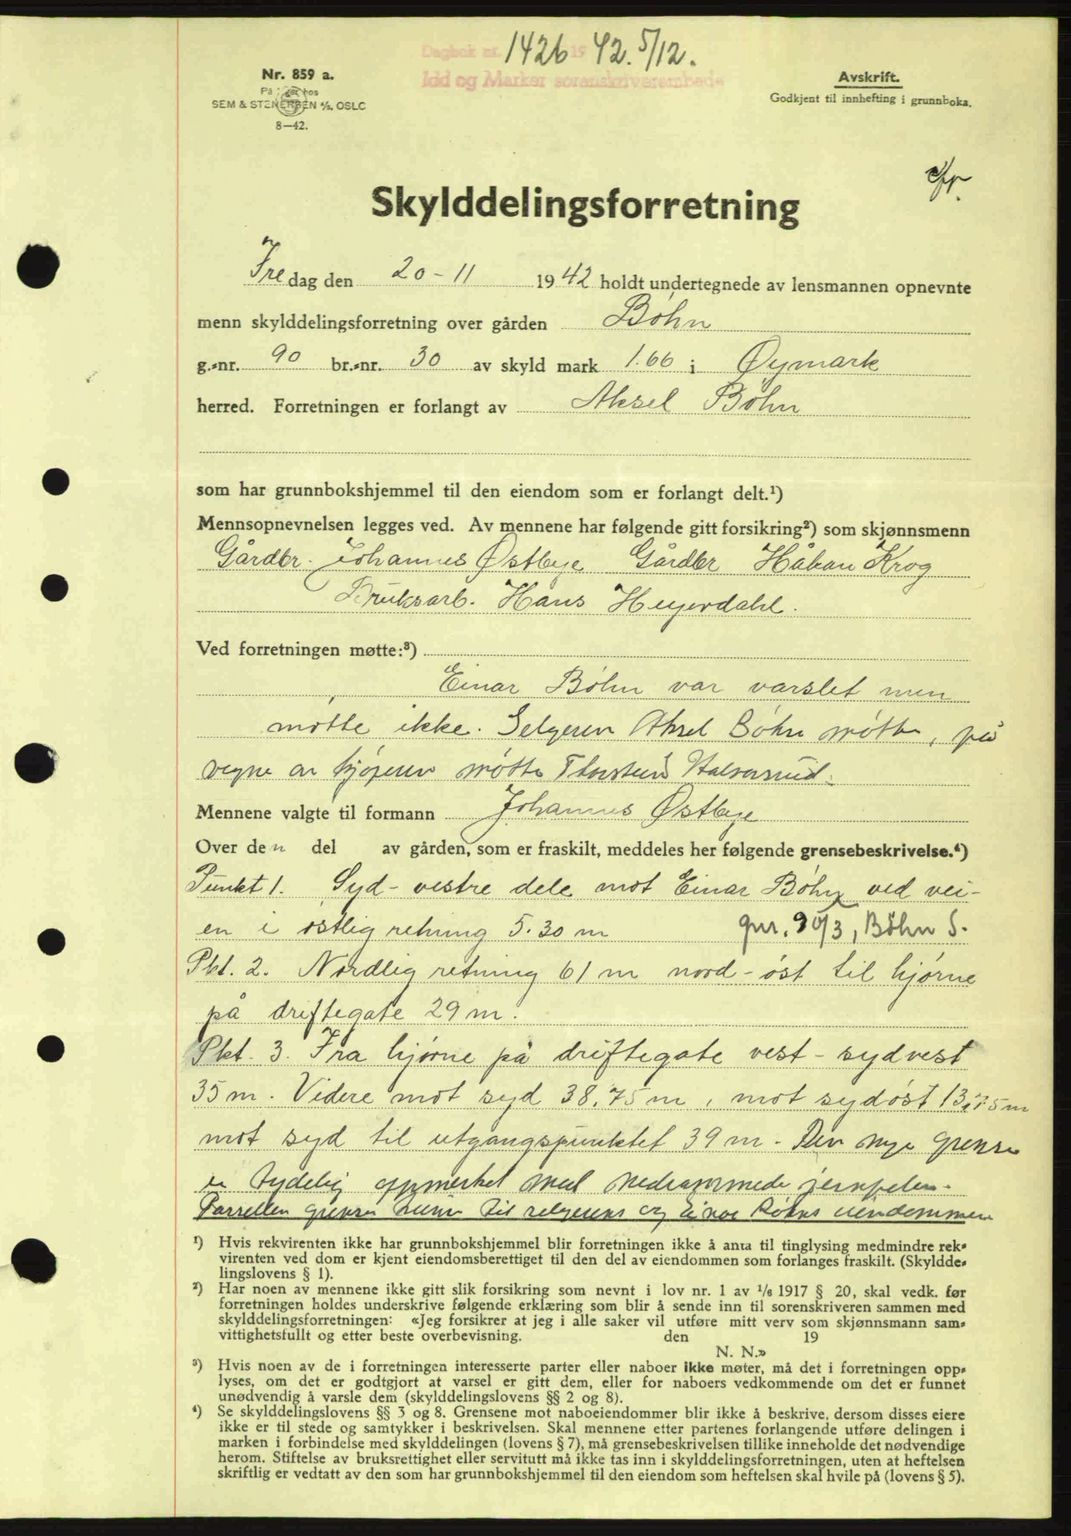 Dagbok nr. 1426 19 42. 5/12.
Idd og Marker sorenskriverembede
Nr. 859 a.
På lager hos
SEM & STENERSEN A/S, OSLO
8—42.
Avskrift.
Godkjent til innhefting i grunnboka.
Skylddelingsforretning
Fredag den 20-11 1942 holdt undertegnede av lensmannen opnevnte
menn skylddelingsforretning over gården Bøhn
g.-nr. 90 br.-nr. 30 av skyld mark 1.66 i Øymark
herred. Forretningen er forlangt av Aksel Bøhn
som har grunnbokshjemmel til den eiendom som er forlangt delt.¹)
Mennsopnevnelsen legges ved. Av mennene har følgende gitt forsikring²) som skjønnsmenn
Gårdbr. Johannes Østbye Gårdbr Håkan Krog
Bruksarb. Hans Heyerdahl.
Ved forretningen møtte:³)
Einar Bøhn var varslet men
møtte ikke. Selgeren Aksel Bøhn møtte, på
vegne av kjøperen møtte Thorstein Halvorsrud.
Mennene valgte til formann Johannes Østbye
Over den del av gården, som er fraskilt, meddeles her følgende grensebeskrivelse.⁴)
Punkt 1. Syd-vestre dele mot Einar Bøhn ved vei-
en i østlig retning 5.30 m gnr. 90/3, Bøhn S.
Pkt. 2. Nordlig retning 61 m nord-øst til hjørne
på driftegate 29 m.
Pkt. 3. Fra hjørne på driftegate vest-sydvest
35 m. Videre mot syd 38,75 m, mot sydøst 13,75 m
mot syd til utgangspunktet 39 m. Den nye grense
er tydelig oppmerket med nedrammede jernpeler.
Parsellen grenser kun til selgerens og Einar Bøhns eiendommer
¹) Hvis rekvirenten ikke har grunnbokshjemmel blir forretningen ikke å anta til tinglysing medmindre rek-
virenten ved dom er kjent eiendomsberettiget til den del av eiendommen som forlanges fraskilt. (Skyldde-
lingslovens § 1).
²) Har noen av mennene ikke gitt slik forsikring som nevnt i lov nr. 1 av 1/6 1917 § 20, skal vedk. før
forretningen holdes underskrive følgende erklæring som blir å sende inn til sorenskriveren sammen med
skylddelingsforretningen: «Jeg forsikrer at jeg i alle saker vil utføre mitt verv som skjønnsmann sam-
vittighetsfullt og etter beste overbevisning. den 19
N. N.»
³) Hvis noen av de i forretningen interesserte parter eller naboer ikke møter, må det i forretningen opp-
lyses, om det er godtgjort at varsel er gitt dem, eller for naboers vedkommende om det er funnet
unødvendig å varsle dem (skylddelingslovens §§ 2 og 8).
⁴) Se skylddelingslovens §§ 3 og 8. Grensene mot naboeiendommer blir ikke å beskrive, dersom disses eiere
ikke er til stede og samtykker i beskrivelsen. Skal mennene etter partenes forlangende utføre delingen i
marken i forbindelse med skylddelingen (lovens § 7), må grensebeskrivelsen tillike inneholde det nødvendige
herom. Stiftelse av bruksrettighet eller servitutt må ikke tas inn i skylddelingsforretningen, uten at heftelsen
skriftlig er vedtatt av den som har grunnbokshjemmel til den eiendom som heftelsen skal hvile på (lovens § 5).